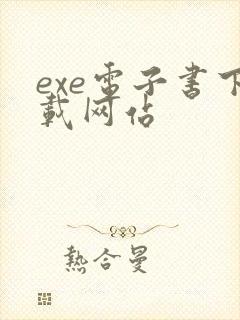 exe电子書下
載网站
熱合曼